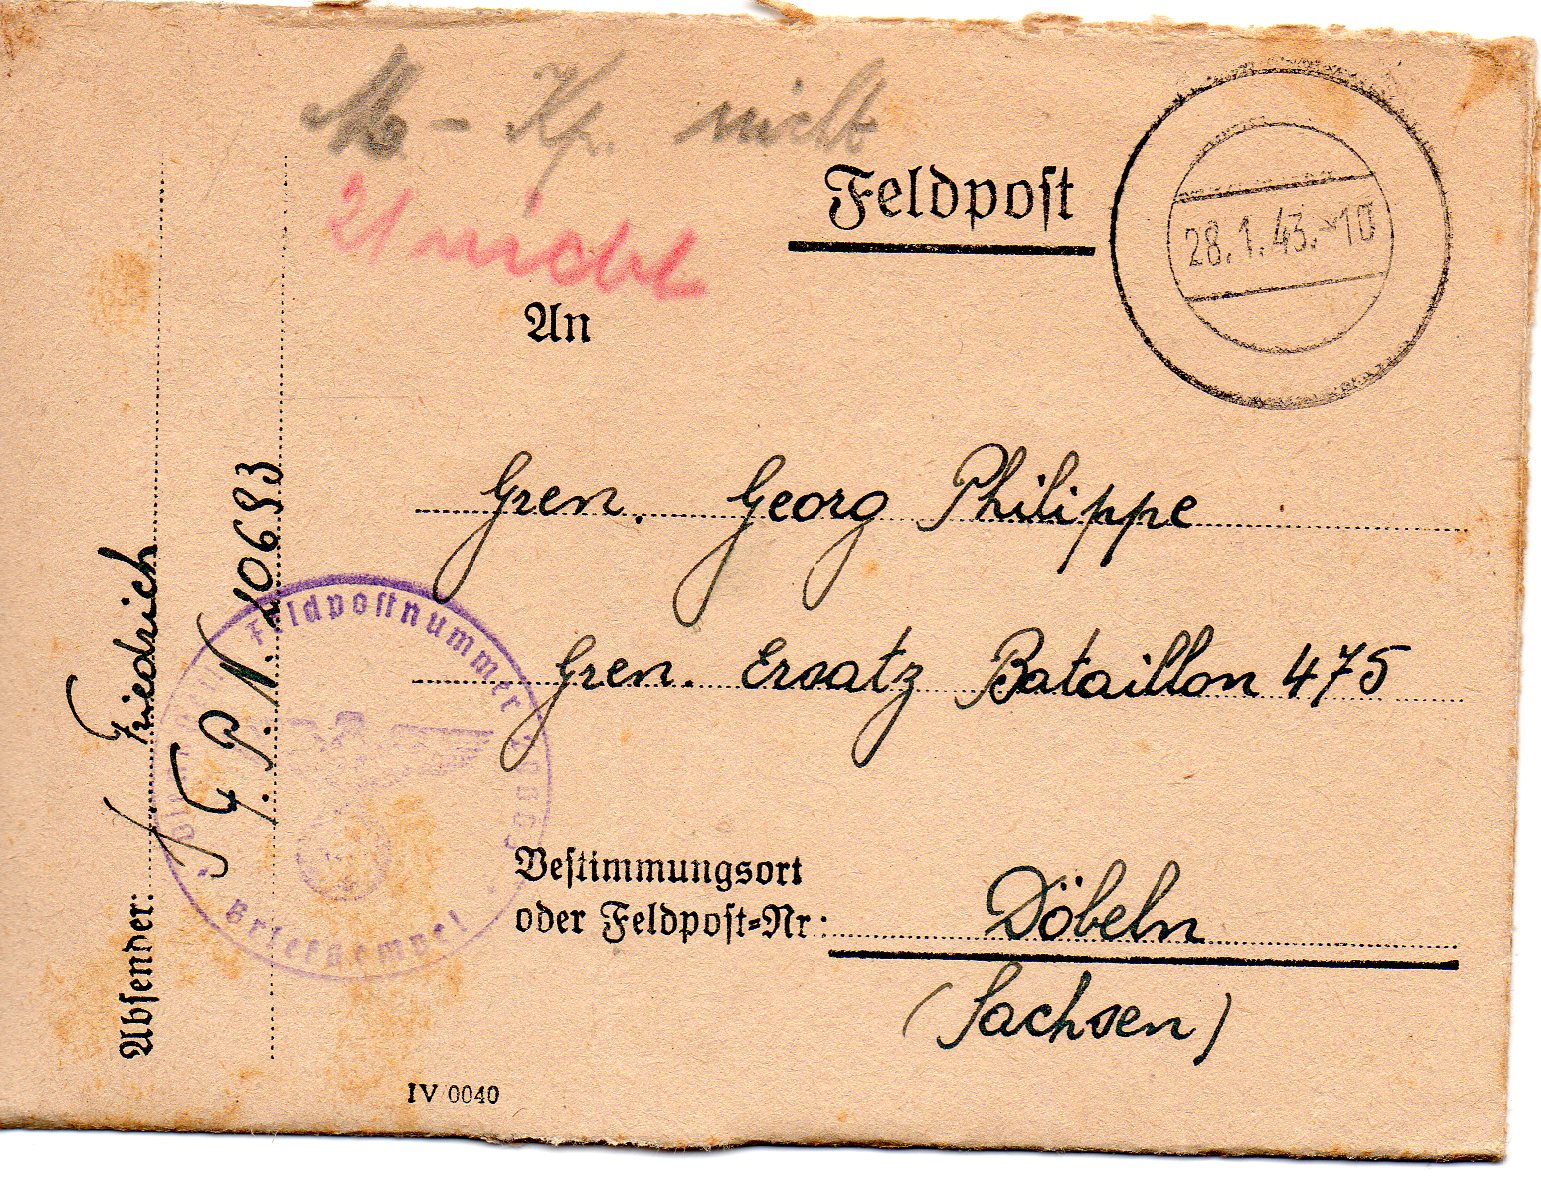 M - Kp. nicht
21 nicht
Feldpost
28.1.43.-10
An
Gren. Georg Philippe
Gren. Ersatz Bataillon 475
Bestimmungsort
oder Feldpost-Nr:
Döbeln
(Sachsen)
Absender:
Friedrich
F.P.N. 10693
Feldpostnummer
Briefstempel
IV 0040